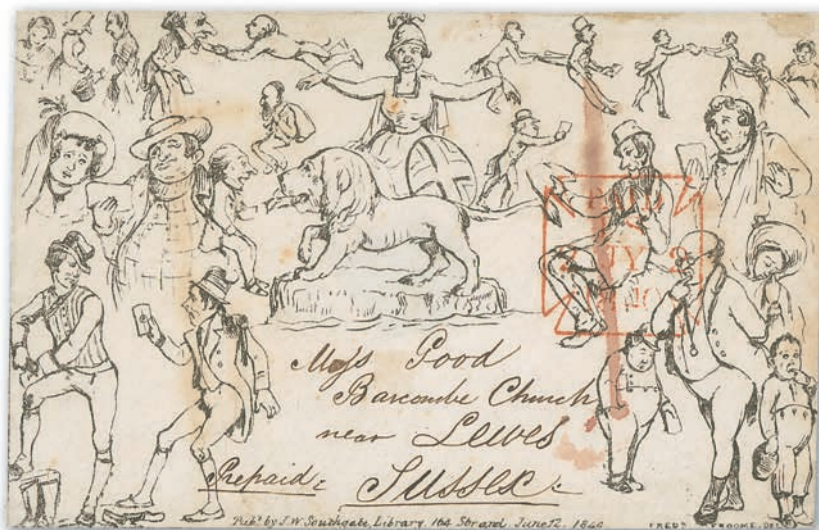 PAID
Miss Good
Barcombe Church
near Lewes
Prepaid: Sussex:
Pubd. by J.W. Southgate, Library, 164 Strand, June 12, 1840
FREDk.